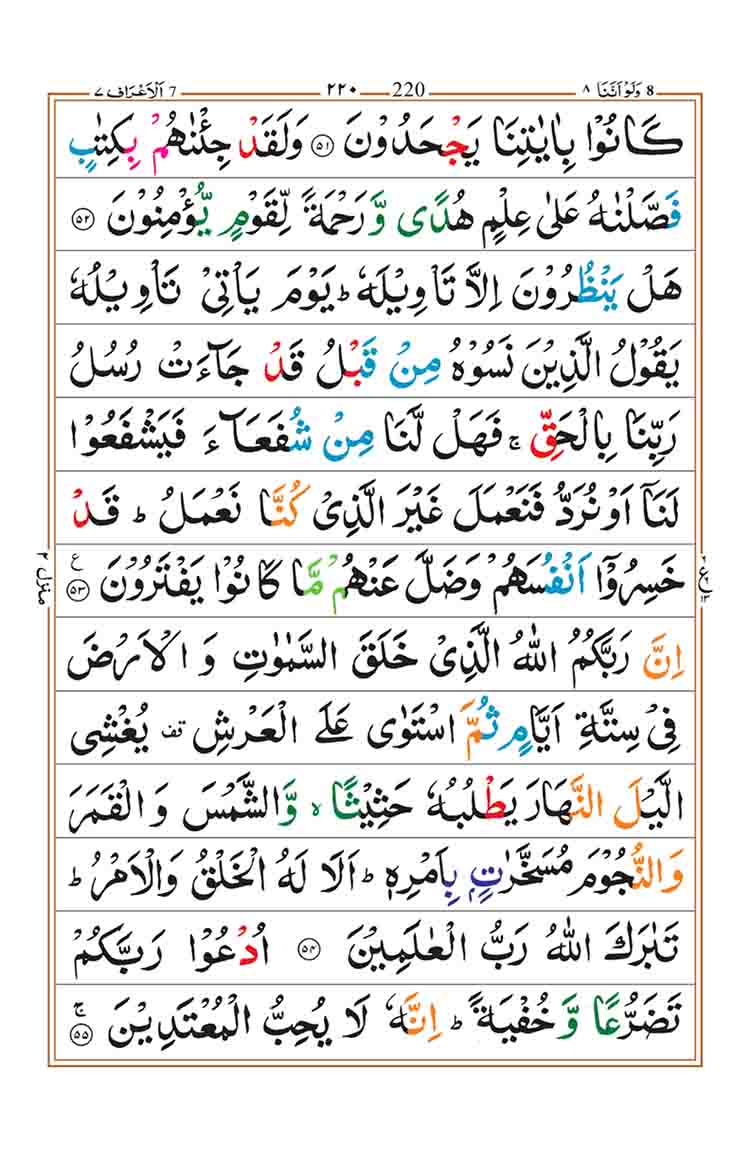 8 وَلَوْ اَنَّنَا ٨ 220 ٢٢٠ 7 اَلْاَعْرَاف ٧
كَانُوْا بِاٰيٰتِنَا يَجْحَدُوْنَ ۝٥١ وَلَقَدْ جِئْنٰهُمْ بِكِتٰبٍ
فَصَّلْنٰهُ عَلٰى عِلْمٍ هُدًى وَّ رَحْمَةً لِّقَوْمٍ يُّؤْمِنُوْنَ ۝٥٢
هَلْ يَنْظُرُوْنَ اِلَّا تَاْوِيْلَهٗ ؕ يَوْمَ يَاْتِيْ تَاْوِيْلُهٗ
يَقُوْلُ الَّذِيْنَ نَسُوْهُ مِنْ قَبْلُ قَدْ جَآءَتْ رُسُلُ
رَبِّنَا بِالْحَقِّ ۚ فَهَلْ لَّنَا مِنْ شُفَعَآءَ فَيَشْفَعُوْا
لَنَآ اَوْ نُرَدُّ فَنَعْمَلَ غَيْرَ الَّذِيْ كُنَّا نَعْمَلُ ؕ قَدْ
خَسِرُوْٓا اَنْفُسَهُمْ وَضَلَّ عَنْهُمْ مَّا كَانُوْا يَفْتَرُوْنَ ۝٥٣ ع
منزل ٢
اِنَّ رَبَّكُمُ اللّٰهُ الَّذِيْ خَلَقَ السَّمٰوٰتِ وَ الْاَرْضَ
فِيْ سِتَّةِ اَيَّامٍ ثُمَّ اسْتَوٰى عَلَى الْعَرْشِ قف يُغْشِى
الَّيْلَ النَّهَارَ يَطْلُبُهٗ حَثِيْثًا ۙ وَّالشَّمْسَ وَ الْقَمَرَ
وَالنُّجُوْمَ مُسَخَّرٰتٍۭ بِاَمْرِهٖ ؕ اَلَا لَهُ الْخَلْقُ وَالْاَمْرُ ؕ
تَبٰرَكَ اللّٰهُ رَبُّ الْعٰلَمِيْنَ ۝٥٤ اُدْعُوْا رَبَّكُمْ
تَضَرُّعًا وَّ خُفْيَةً ؕ اِنَّهٗ لَا يُحِبُّ الْمُعْتَدِيْنَ ۝٥٥ ج